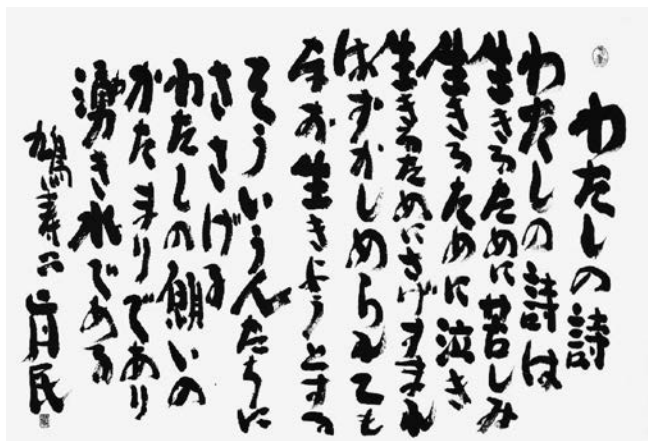 わたしの詩
わたしの詩は
生きるために苦しみ
生きるために泣き
生きるためにさげすまれ
はずかしめられても
なお生きようとする
そういう人たちに
ささげる
わたしの願いの
かたまりであり
湧き水である
鳩寿 真民